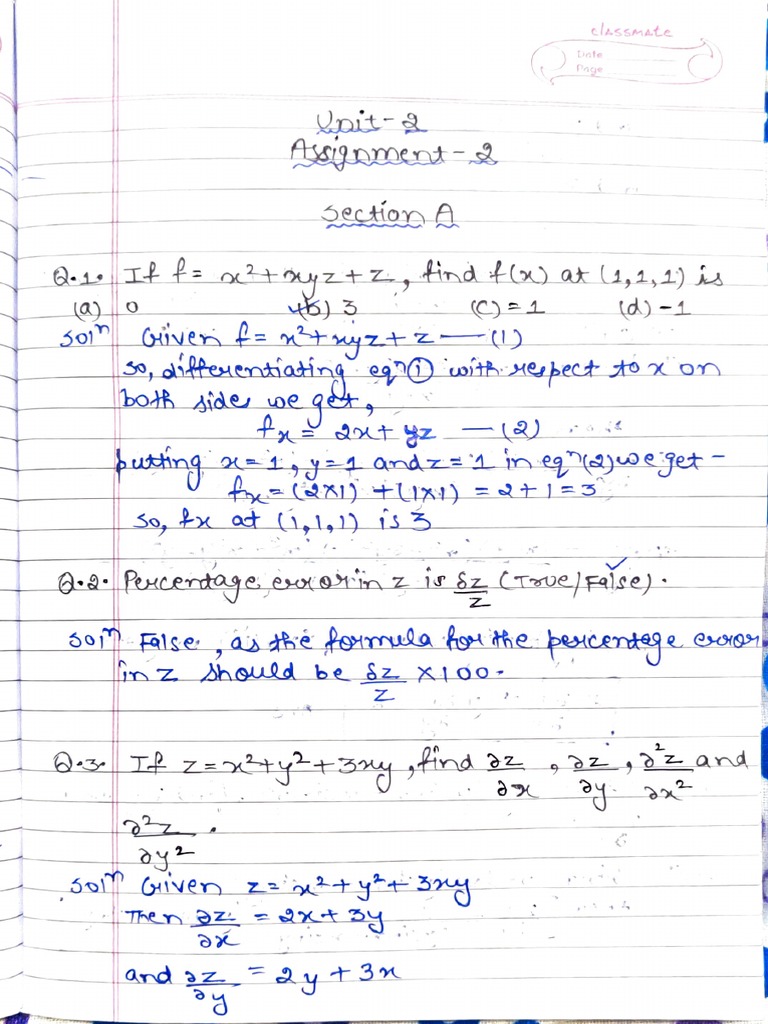 classmate
Date
Page
Unit-2
Assignment-2
Section A
Q.1. If f = x²+xyz+z, find f(x) at (1,1,1) is
(a) 0 (b) 3 (c) = 1 (d) -1
Solⁿ Given f = x²+xyz+z —(1)
so, differentiating eqⁿ① with respect to x on
both side we get,
fx = 2x + yz —(2)
putting x=1, y=1 and z=1 in eqⁿ(2) we get -
fx = (2×1) + (1×1) = 2+1 = 3
so, fx at (1,1,1) is 3
Q.2. Percentage error in z is δz/z (True/False).
Solⁿ False, as the formula for the percentage error
in z should be δz/z ×100.
Q.3. If z = x²+y²+3xy, find ∂z/∂x, ∂z/∂y, ∂²z/∂x² and
∂²z/∂y².
Solⁿ Given z = x²+y²+3xy
Then ∂z/∂x = 2x + 3y
and ∂z/∂y = 2y + 3x